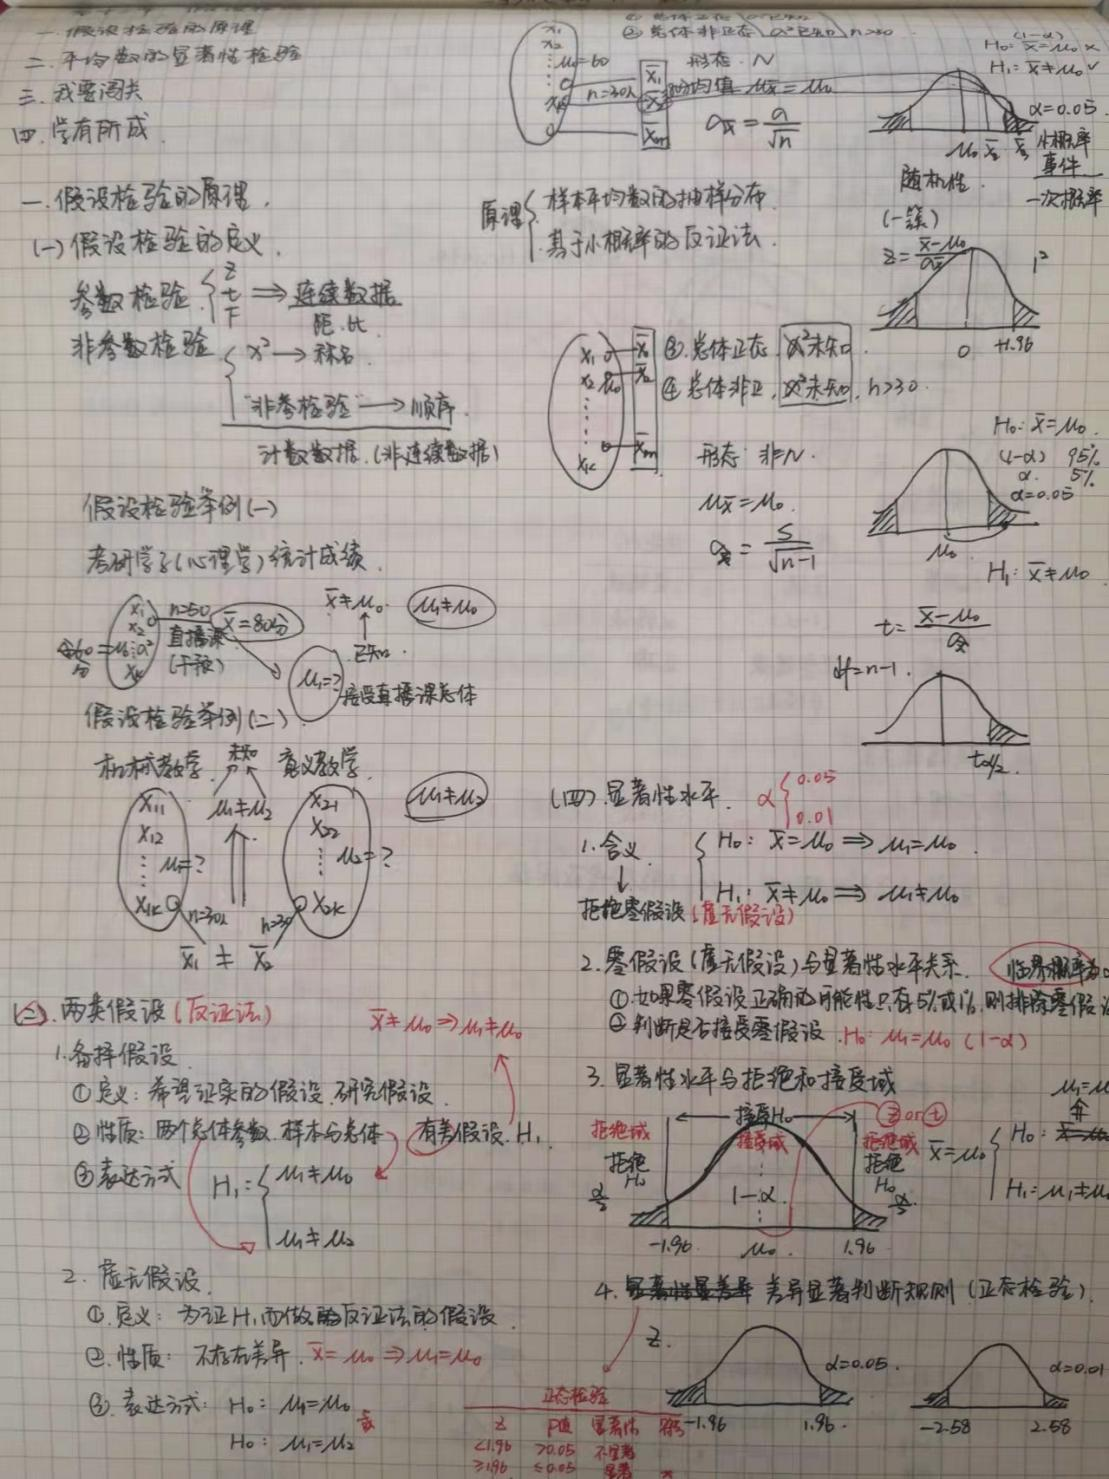 一 假设检验的原理
二. 平均数的显著性检验
三. 我要闯关
四. 学有所成
一. 假设检验的原理.
(一) 假设检验的定义.
参数检验 { Z t F ⇒ 连续数据
距. 比
非参数检验 { x² → 称名.
"非参检验" → 顺序.
计数数据. (非连续数据)
假设检验举例(一)
考研学子(心理学)统计成绩.
x1 x2 xk
n=50
直播课
(干预)
x̄=80分
x̄≠μ0.
μ1≠μ0
已知.
μ1=?
接受直播课总体
假设检验举例(二)
机械教学. 未知 意义教学.
x11 x12 ⋮ x1k
μ1=?
μ1≠μ2
x21 x22 ⋮ x2k
μ2=?
μ1≠μ2
n=30人 n=30
x̄1 ≠ x̄2
(二). 两类假设 (反证法)
x̄≠μ0 ⇒ μ1≠μ0
1. 备择假设.
① 定义: 希望证实的假设. 研究假设.
② 性质: 两个总体参数. 样本与总体 有差假设. H1
③ 表达方式 H1: { μ1≠μ0
μ1≠μ2
2. 虚无假设.
①. 定义: 为证H1而做的反证法的假设.
②. 性质: 不存在差异. x̄=μ0 ⇒ μ1=μ0
③. 表达方式: H0: μ1=μ0
H0: μ1=μ2
② 总体非正态 σ²已知 n>30
x1 x2
μ0=60
n=30人
x̄1 x̄2 x̄m
形态. N
均值 μx̄=μ0
σx̄ = σ/√n
(1-α)
H0: x̄=μ0 ×
H1: x̄≠μ0 ✓
α=0.05.
μ0 x̄2
小概率
事件
一次概率
随机性.
原理 { 样本平均数的抽样分布.
基于小概率的反证法.
Z = x̄-μ0 / σx̄
0 +1.96
x1 x2 ⋮ xk
μ0
x̄1 x̄2 x̄m
③. 总体正态. σ²未知.
④ 总体非正. σ²未知. n>30.
形态: 非N.
μx̄=μ0.
σx̄ = S/√n-1
H0: x̄=μ0.
(1-α) 95%
α. 5%
α=0.05
μ0
H1: x̄≠μ0
t = x̄-μ0 / σx̄
df=n-1.
tα/2.
(四). 显著性水平. α { 0.05 0.01
1. 含义. { H0: x̄=μ0 ⇒ μ1=μ0.
H1: x̄≠μ0 ⇒ μ1≠μ0
拒绝零假设 (虚无假设)
2. 零假设 (虚无假设) 与显著性水平关系. 临界概率为
① 如果零假设正确的可能性只有5%或1%, 则排除零假设
② 判断是否接受零假设. H0: μ1=μ0 (1-α)
3. 显著性水平与拒绝和接受域
接受H0
Z or t
拒绝域 接受域 拒绝域
拒绝 H0 拒绝 H0
α/2 1-α. α/2
-1.96. μ0. 1.96.
x̄=μ0 { H0:
H1: μ1≠μ0
4. 差异显著判断规则 (正态检验).
Z.
α=0.05.
-1.96 1.96.
α=0.01
-2.58 2.58
正态检验
Z P值 显著性
<1.96 >0.05 不显著
≥1.96 ≤0.05 显著